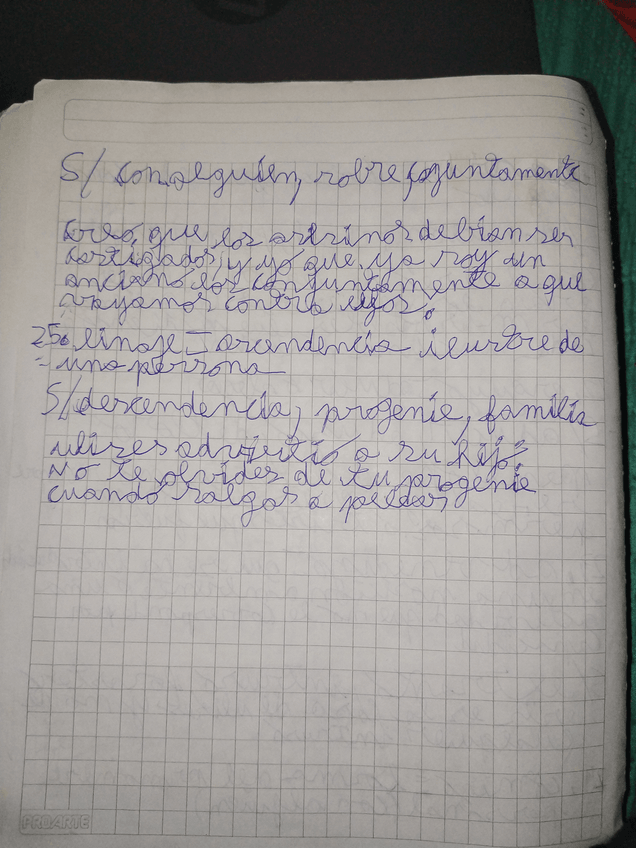 S/ conseguien, sobre conjuntamente
Creo, que los asesinos debian ser
castigados, y yo que ya soy un
anciano los conjuntamente a que
vayamos contra ellos.
25. linaje = ascendencia ilustre de
una persona
S/ descendencia, progenie, familia
ulises advirtió a su hijo
No te olvides de tu progenie
cuando salgas a pelear
PROARTE